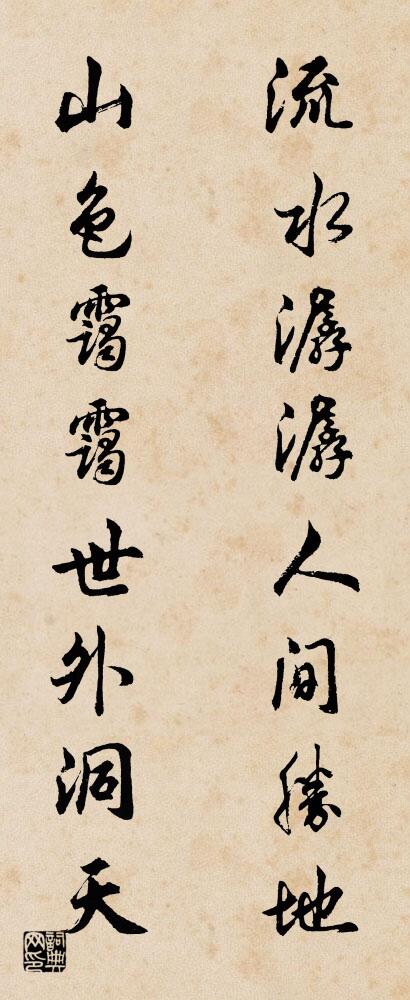 流水潺潺人间勝地
山色靄靄世外洞天
詞典网印